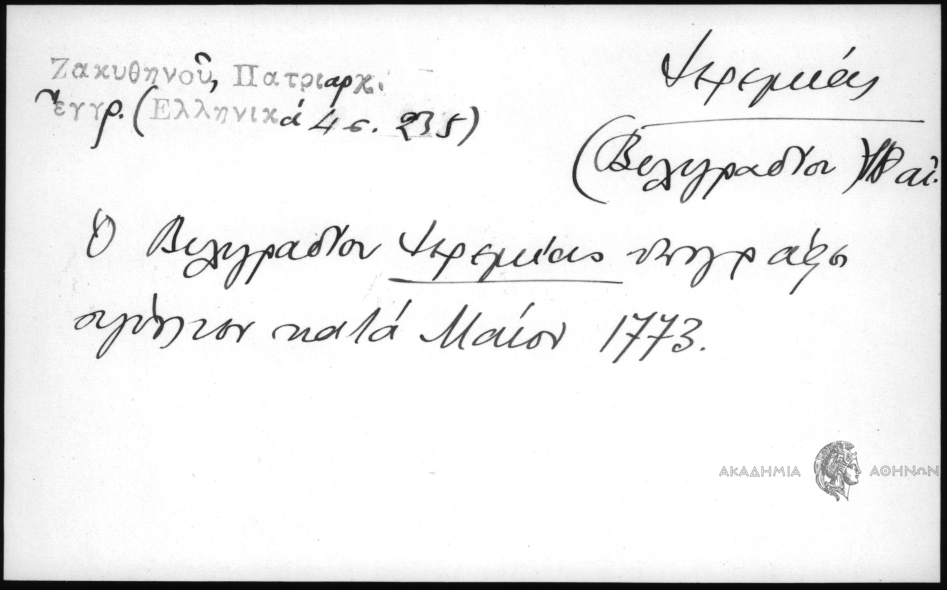 Ζακυθηνοῦ, Πατριαρχ.
ἔγγρ. (Ἑλληνικά 4 σ. 235)
Ἱερεμίας
(Βελιγραδίου)
Ὁ Βελιγραδίου Ἱερεμίας ὑπογράφει
κατά Μαΐον 1773.
ΑΚΑΔΗΜΙΑ ΑΘΗΝΩΝ